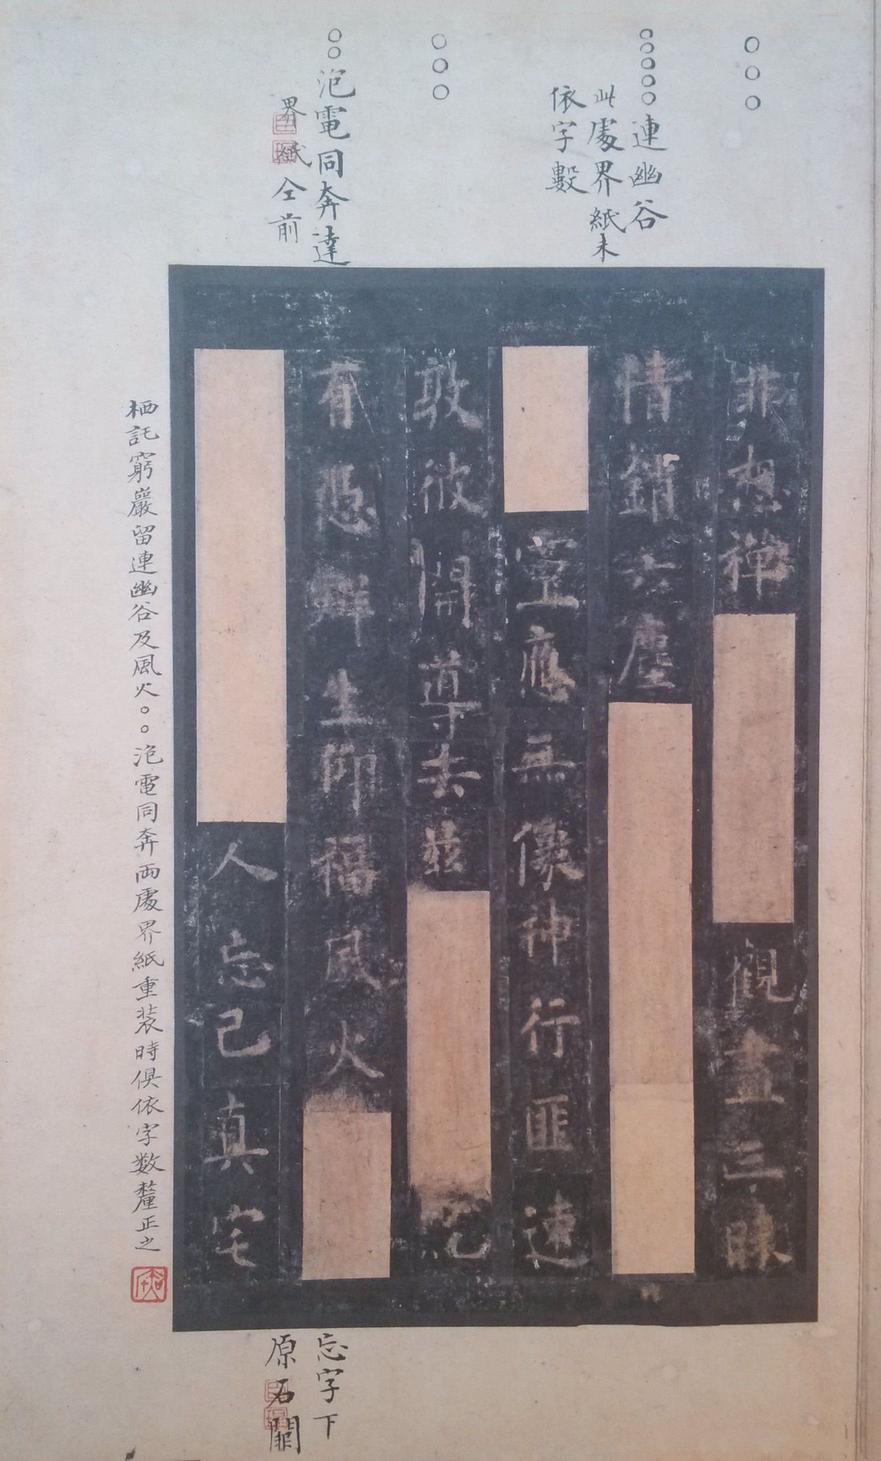 ○○○
○○○○○連幽谷
此處界紙未
依字數
○○○
○○泡電同奔達
界紙仝前
非想禪
觀晝三昧
情銷六塵
靈應無像神行匪速
敦彼開導去茲
有憑群生仰福風火
人忘己真宅
忘字下
原石闕
栖託窮巖留連幽谷及風火○○泡電同奔兩處界紙重裝時俱依字數釐正之